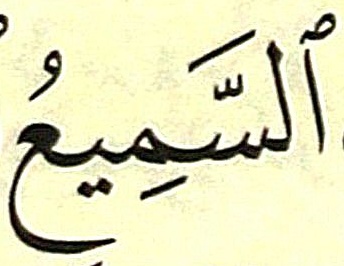 ٱلسَّمِيعُ